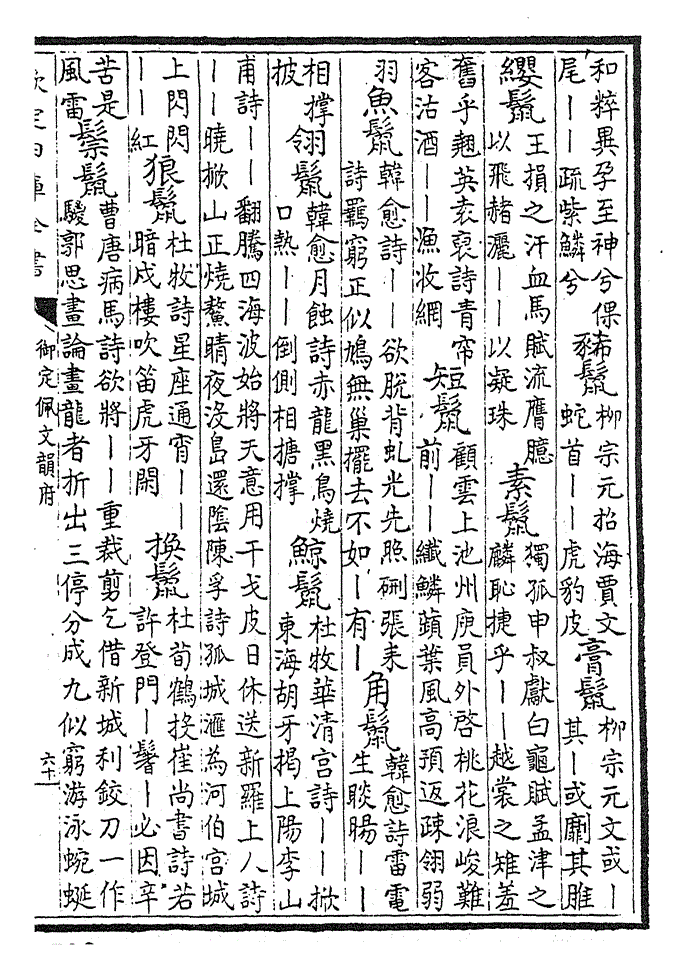 和粹異孕至神兮倮
尾——疏紫鱗兮
豨鬣
柳宗元招海賈文
蛇首——虎豹皮
膏鬣
柳宗元文或—
其—或劘其脽
纓鬣
王損之汗血馬賦流膺臆
以飛赭灑——以凝珠
素鬣
獨孤申叔獻白龜賦孟津之
麟恥捷乎——越裳之雉羞
奮乎翹英袁裒詩青帘
客沽酒——漁收網
短鬣
顧雲上池州庾員外啓桃花浪峻難
前——纖鱗蘋葉風高預返疎翎弱
羽
魚鬣
韓愈詩——欲脫背虬光先照硎張耒
詩羈窮正似鳩無巢擺去不如—有—
角鬣
韓愈詩雷電
生睒暘——
相撐
披
翎鬣
韓愈月蝕詩赤龍黑鳥燒
口熱——倒側相搪撐
鯨鬣
杜牧華清宮詩——掀
東海胡牙揭上陽李山
甫詩——翻騰四海波始將天意用干戈皮日休送新羅上人詩
——曉掀山正燒鰲睛夜沒島還陰陳孚詩孤城滙為河伯宮城
上閃閃
——紅
狼鬣
杜牧詩星座通宵——
暗戍樓吹笛虎牙閒
換鬣
杜荀鶴投崔尚書詩若
許登門—鬐—必因辛
苦是
風雷
鬃鬣
曹唐病馬詩欲將——重裁剪乞借新城利鉸刀一作
騣郭思畫論畫龍者折出三停分成九似窮游泳蜿蜒
欽定四庫全書
御定佩文韻府
六十一